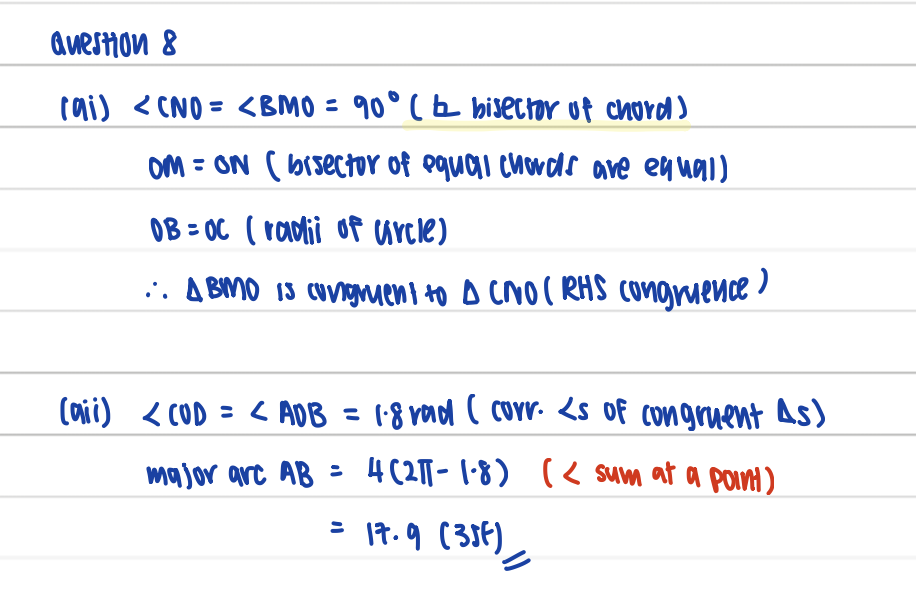 Question 8
(ai) <CNO = <BMO = 90° (⊥ bisector of chord)
OM = ON (bisector of equal chords are equal)
OB = OC (radii of circle)
∴ △BMO is congruent to △CNO (RHS congruence)
(aii) <COD = <AOB = 1.8 rad (corr. <s of congruent △s)
major arc AB = 4(2π - 1.8) (< sum at a point)
= 17.9 (3sf)